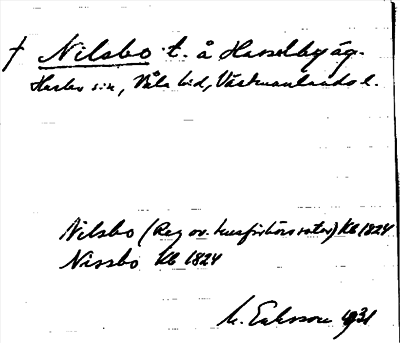 † Nilsbo t. å Hasselby äg.
Harbo sn, Våla hd, Västmanlands l.
Nilsbo (Reg. ov. husförhörsrotar) Kb 1824
Nissbo Kb 1824
M. Eriksson 1931